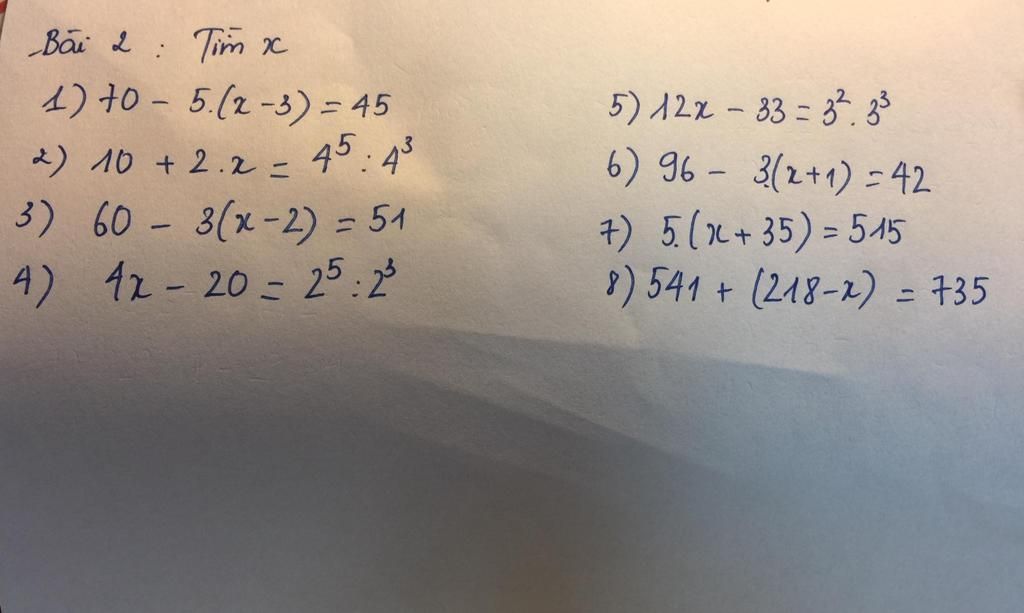 Bài 2 : Tìm x
1) 70 - 5.(x-3) = 45
2) 10 + 2.x = 4⁵ : 4³
3) 60 - 3(x-2) = 51
4) 4x - 20 = 2⁵ : 2³
5) 12x - 33 = 3² . 3³
6) 96 - 3.(x+1) = 42
7) 5.(x + 35) = 515
8) 541 + (218-x) = 735